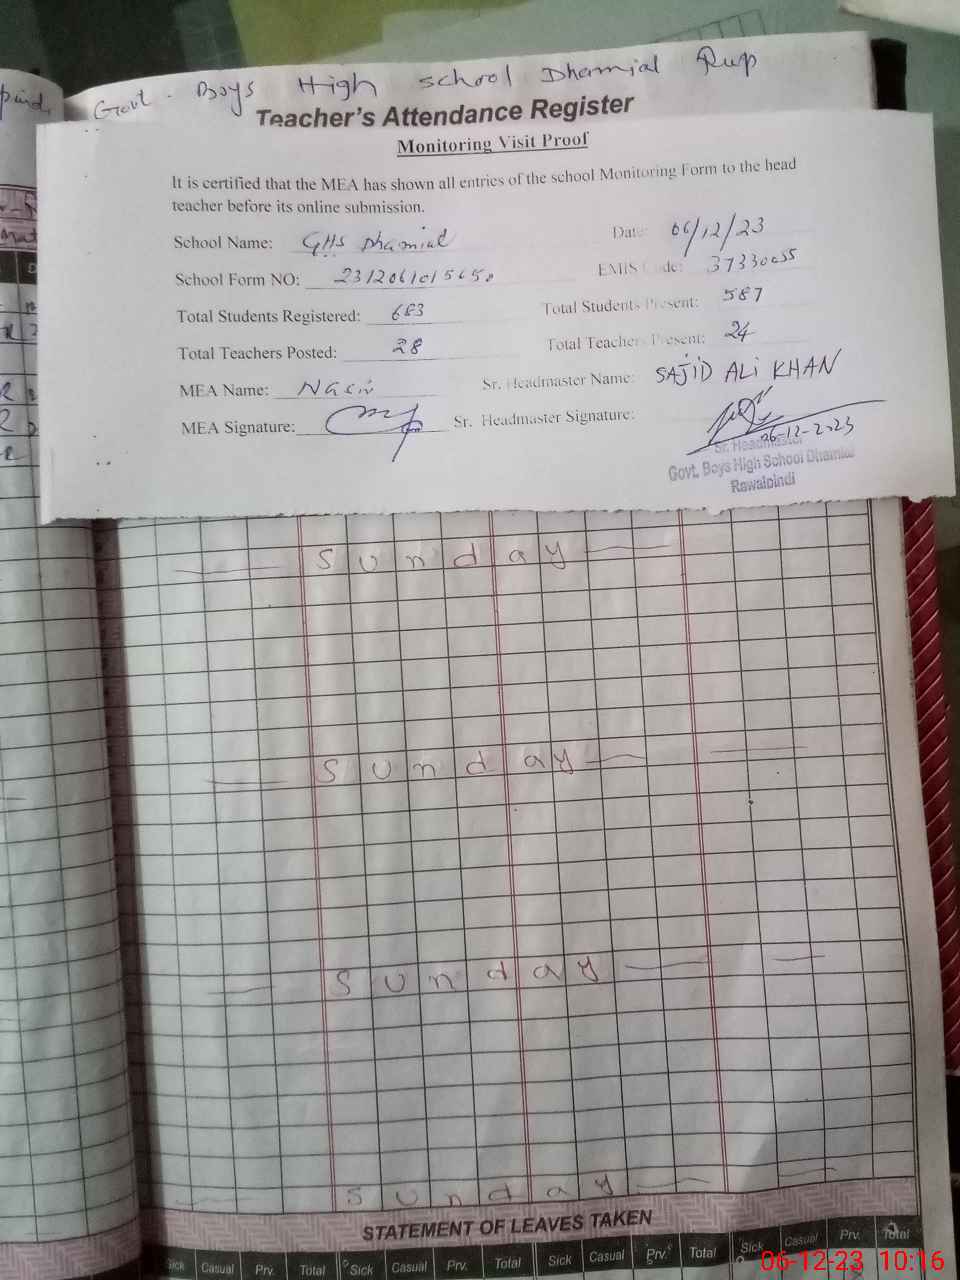 Govt. Boys High school Dhamial Rwp
Teacher's Attendance Register
Monitoring Visit Proof
It is certified that the MEA has shown all entries of the school Monitoring Form to the head
teacher before its online submission.
School Name: GHS Dhamial Date: 06/12/23
School Form NO: EMIS Code: 37330055
Total Students Registered: 683 Total Students Present: 587
Total Teachers Posted: 28 Total Teachers Present: 24
MEA Name: Sr. Headmaster Name: SAJID ALI KHAN
MEA Signature: Sr. Headmaster Signature:
Sr. Headmaster
Govt. Boys High School Dhamial
Rawalpindi
Sunday
Sunday
Sunday
Sunday
STATEMENT OF LEAVES TAKEN
Sick Casual Prv. Total Sick Casual Prv. Total Sick Casual Prv. Total Sick Casual Prv. Total
06-12-23 10:16